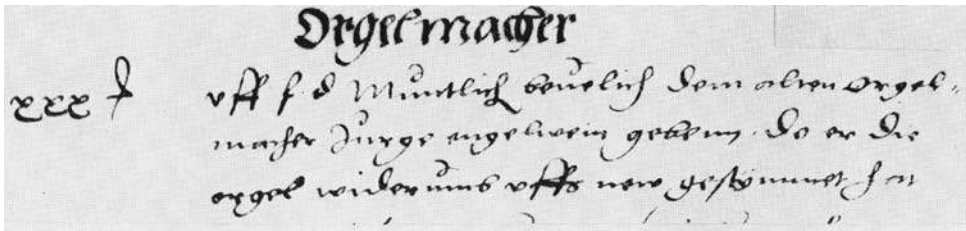 Orgelmacher
xxx f uff f d Muntlich beuelich dem alten orgel-
macher Jurge engelwein gebenn, do er die
orgel widerumb uffs new gestymmet hat